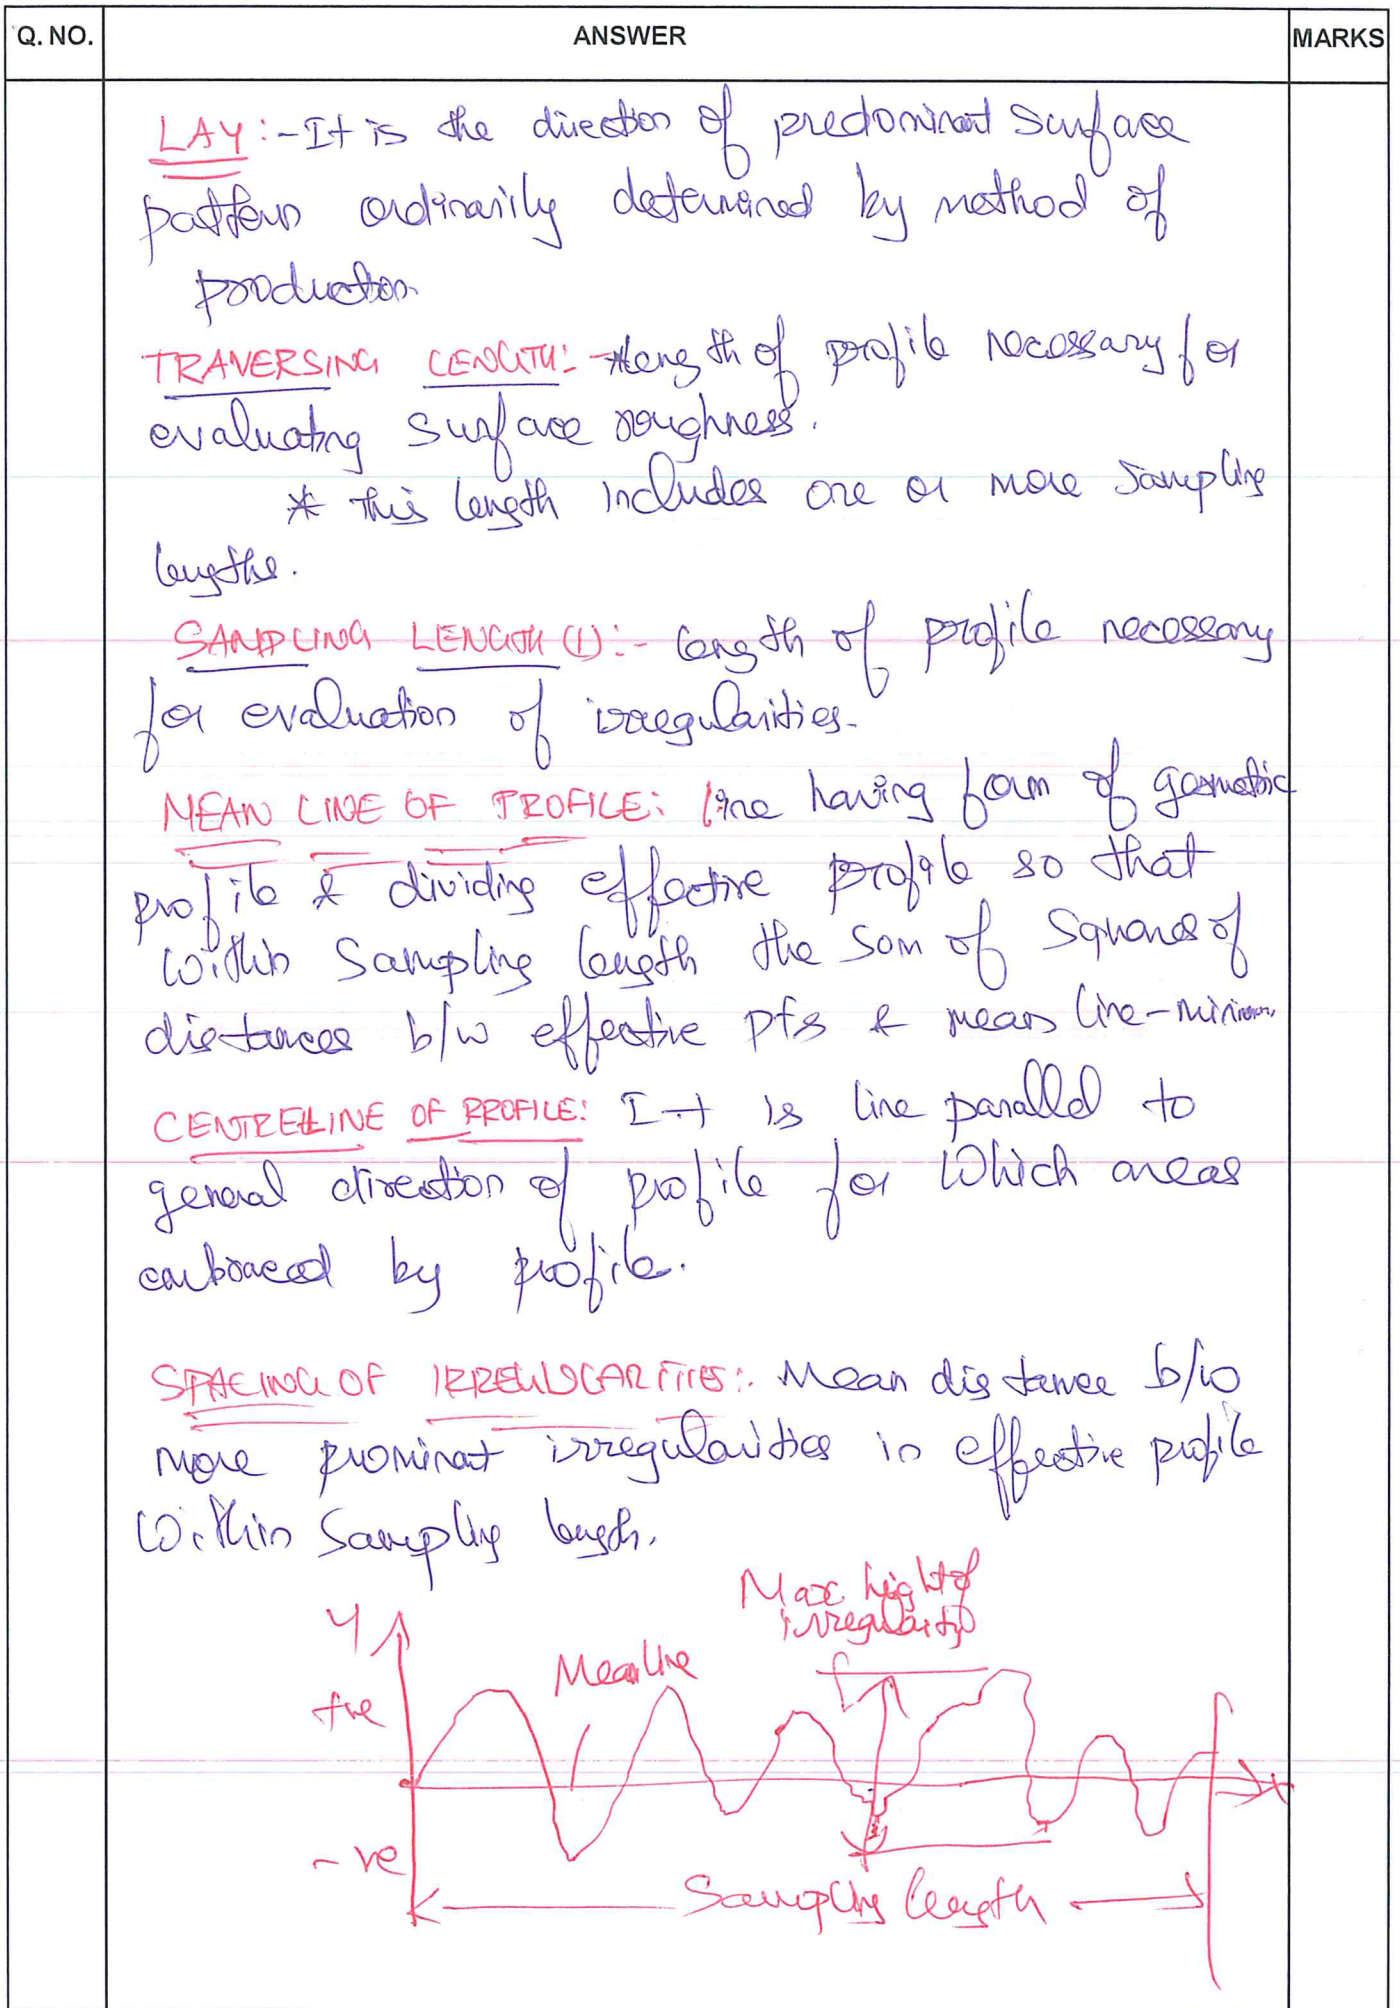 Q. NO. ANSWER MARKS
LAY :- It is the direction of predominant surface
pattern ordinarily determined by method of
production.
TRAVERSING LENGTH :- length of profile necessary for
evaluating surface roughness.
* This length includes one or more sampling
lengths.
SAMPLING LENGTH (l) :- length of profile necessary
for evaluation of irregularities.
MEAN LINE OF PROFILE: line having form of geometric
profile & dividing effective profile so that
within sampling length the sum of squares of
distances b/w effective pts & mean line - minimum.
CENTRE LINE OF PROFILE: It is line parallel to
general direction of profile for which areas
embraced by profile.
SPACING OF IRREGULARITIES:- Mean distance b/w
more prominent irregularities in effective profile
within sampling length.
Max hight of
irregularity
Y
Mean line
+ve
x
-ve
Sampling length